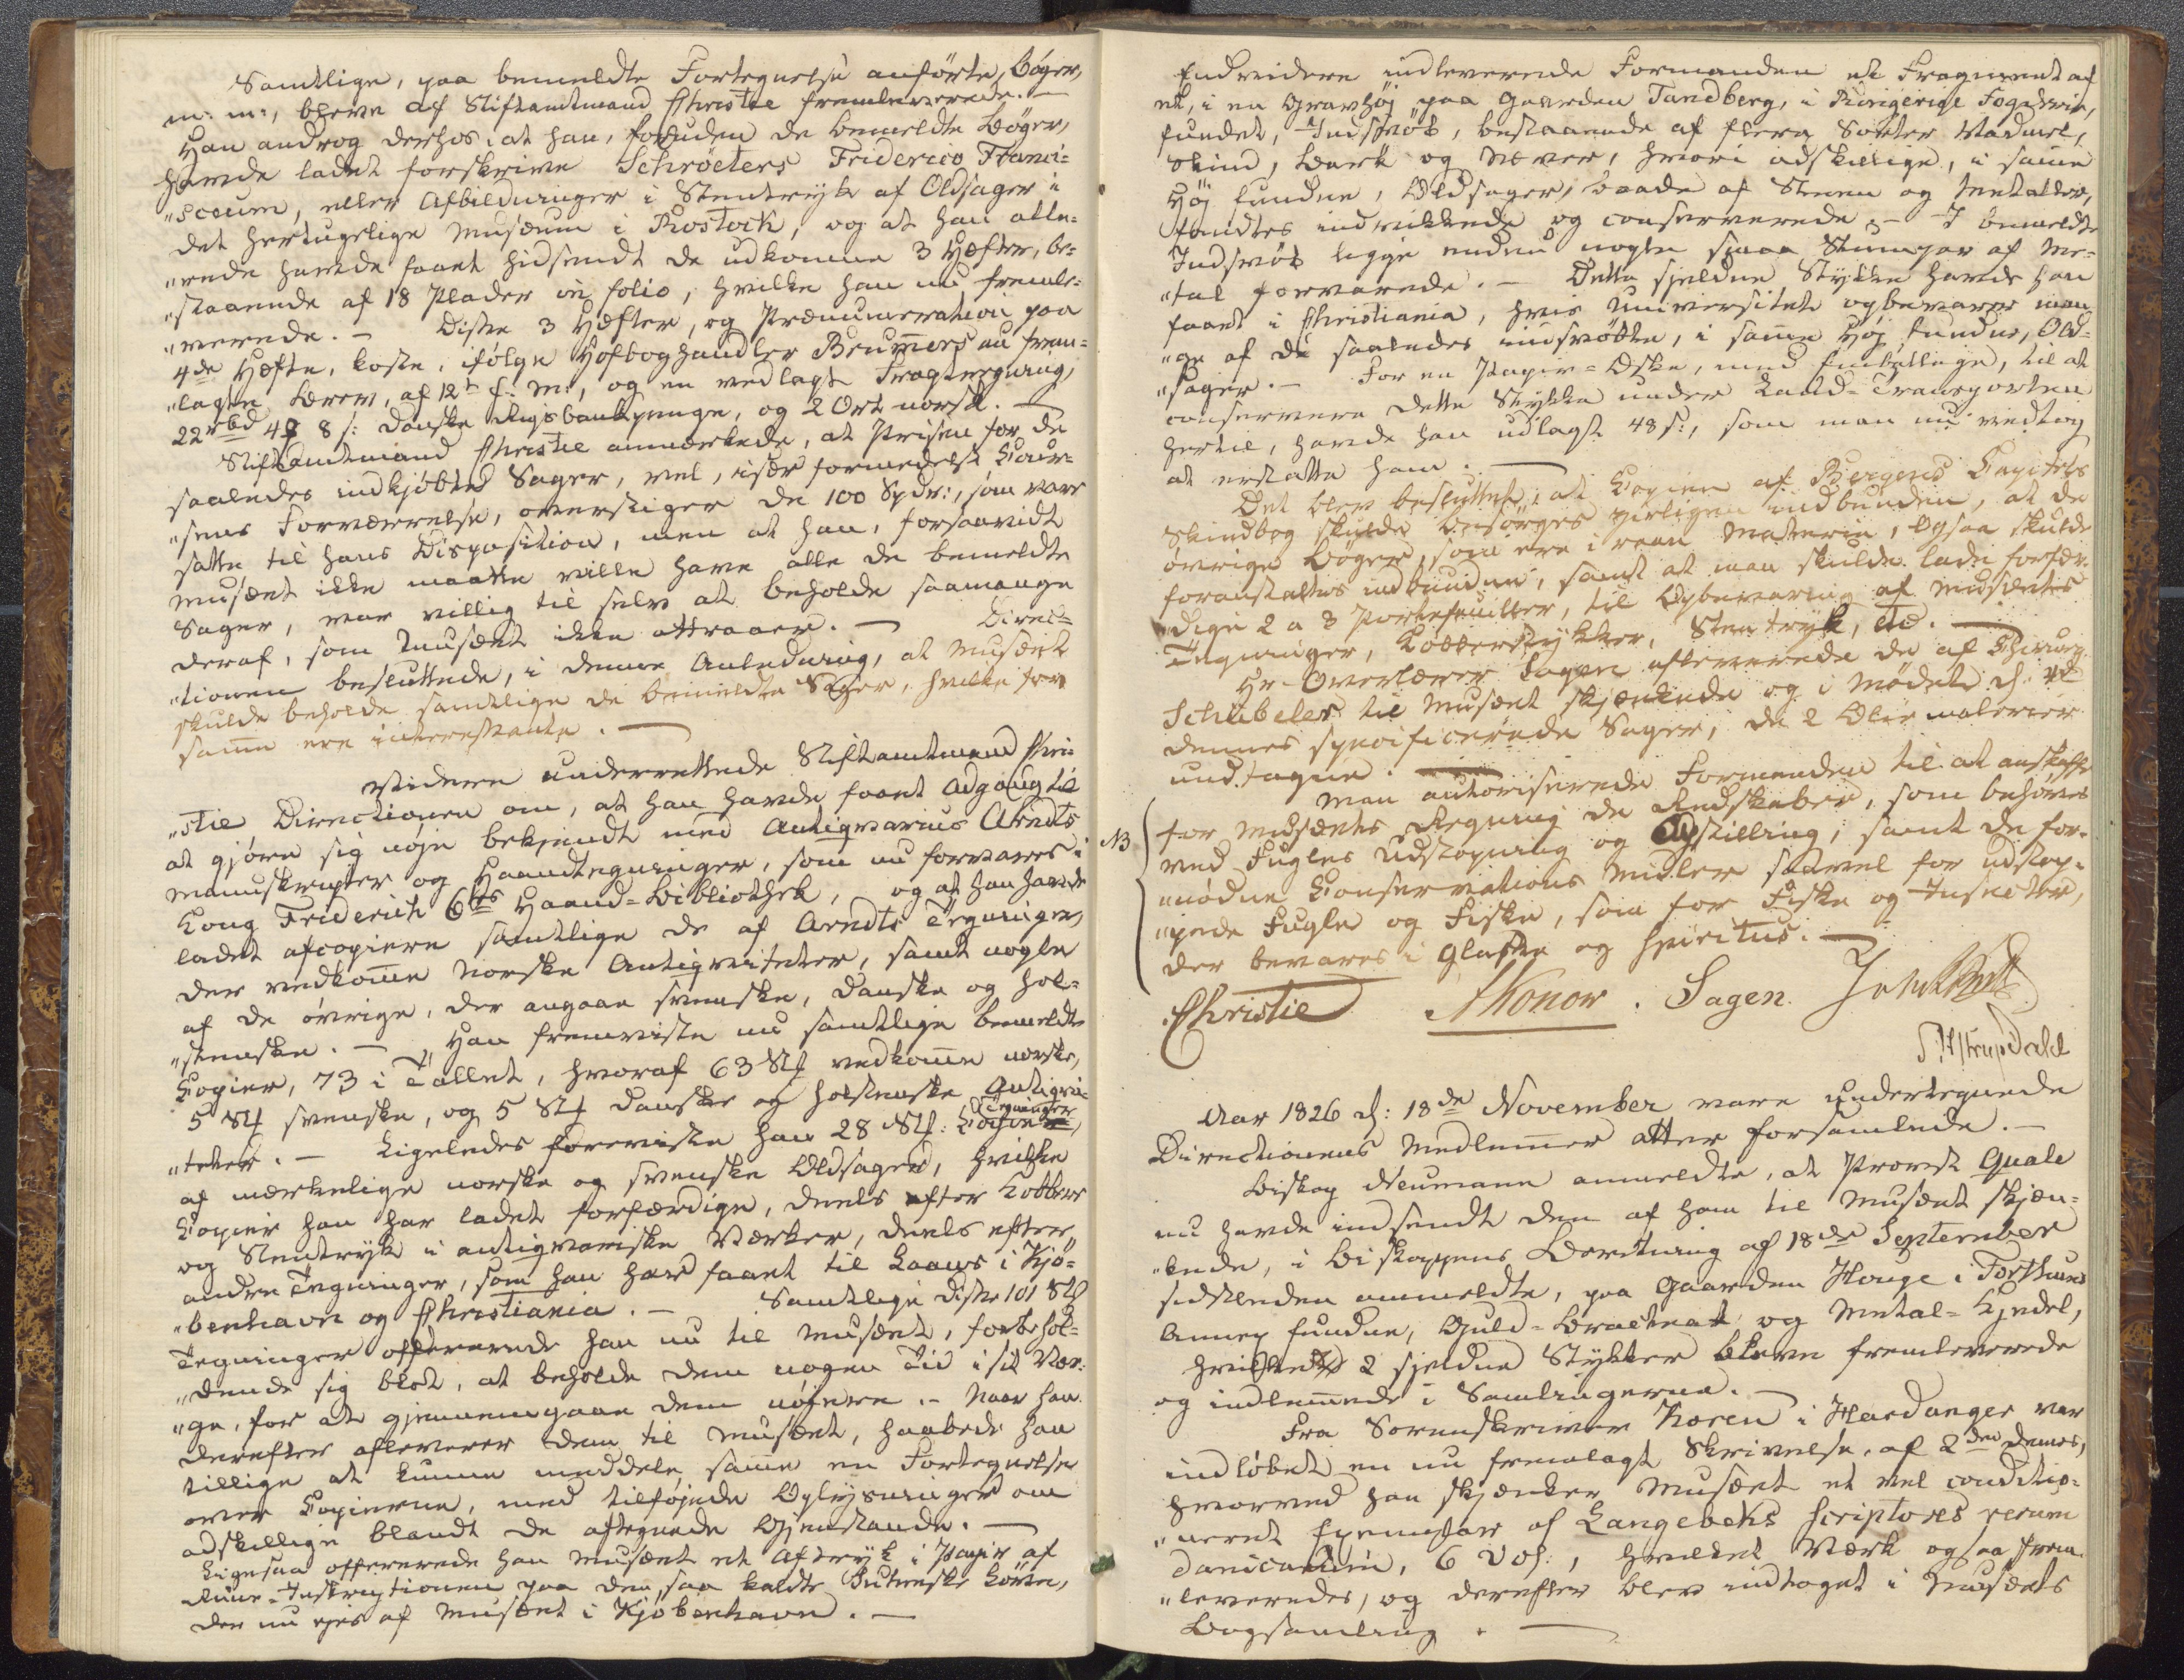 Samtlige, paa bemeldte Fortegnelse anførte, Bøger,
m: m:, bleve af Stiftamtmand Christie fremleverede. —
Han androg derhos, at han, foruden de bemeldte Bøger,
havde ladet forskrive Schröeters Friderico Franci=
"sceum, eller Afbildninger i Steentryk af Oldsager i
det hertugelige Musæum i Rostock, og at han alle=
"rede havde faaet hidsendt de udkomne 3 Hæfter, be=
"staaende af 18 Plader in folio, hvilke han nu fremle=
"verede. — Disse 3 Hæfter, og Prænumeration paa
4de Hæfte, koste, ifølge Hofboghandler Brummers nu frem=
"lagte Brev, af 12te f: M:, og en vedlagt Fragtregning,
22 rbd 4 $ 8 s: danske Rigsbankpenge, og 2 Ort norsk. —
Stiftamtmand Christie anmærkede, at Prisen for de
saaledes indkjøbte Sager, vel, især formedelst Cour=
"sens Forværrelse, overstiger de 100 Spdr:, som vare
satte til hans Disposition, men at han, forsaavidt
Musæet ikke maatte ville have alle de bemeldte
Sager, var villig til selv at beholde saamange
deraf, som Musæet ikke attraaer. — Direc=
"tionen besluttede, i denne Anledning, at Musæet
skulde beholde samtlige de bemeldte Sager, hvilke for
samme ere interessante. —
Videre underrettede Stiftamtmand Chri=
"stie Directionen om, at han havde faaet Adgang til
at gjøre sig nøje bekjendt med Antiqvarius Arendts
Manuskripter og Haandtegninger, som nu forvares i
Kong Friderich 6tes Haand=Bibliothek, og at han havde
ladet afcopiere samtlige de af Arendts Tegninger,
der vedkomme Norske Antiqviteter, samt nogle
af de øvrige, der angaae svenske, danske og hol=
"stenske. — Han fremviste nu samtlige bemeldte
Copier, 73 i Tallet, hvoraf 63 Stk vedkomme norske,
5 Stk svenske, og 5 Stk danske og holstenske Antiqvi=
"teter. — Ligeledes foreviste han 28 Stk: Tegninger,
af mærkelige norske og svenske Oldsager, hvilke
Copier han har ladet forfærdige, deels efter Kobbere
og Steentryk i antiqvariske Værker, deels efter
andre Tegninger, som han har faaet til Laans i Kjø=
"benhavn og Christiania. — Samtlige disse 101 Stk
Tegninger offererede han nu til Musæet, forbehol=
"dende sig blot, at beholde dem nogen Tid i sit Vær=
"ge, for at gjennemgaae dem nøjere. — Naar han
derefter afleverer dem til Musæet, haabede han
tillige at kunne meddele samme en Fortegnelse
over Copierne, med tilføjede Oplysninger om
adskillige blandt de aftegnede Gjenstande. —
Ligesaa offererede han Musæet et Aftryk i Papir af
Rune=Inskriptionen paa den, saa kaldte Løve,
der nu ejes af Musæet i Kjøbenhavn. —
Endvidere indleverede Formanden et Fragment af
et, i en Gravhøj paa Gaarden Tandberg, i Ringerige Fogderie,
fundet, Indsvøb, bestaaende af flere Sorter Vadmel,
Skind, Bark og Næver, hvori adskillige, i samme
Høj fundne, Oldsager, baade af Steen og Metaller,
fandtes indviklede og conserverede. — I bemeldte
Indsvøb ligge endnu nogle smaa Stumper af Me=
"tal forvarede. — Dette sjeldne Stykke havde han
faaet i Christiania, hvis Universitet opbevarer man=
"ge af de saaledes indsvøbte, i samme Høj fundne, Old=
"sager. — For en Papir=Æske, med Emballage, til at
conservere dette Stykke under Land=Transporten
hertil, havde han udlagt 48 s:, som man nu vedtog
at erstatte ham. —
Det blev besluttet, at Copien af Bergens Capitels
Skindbog skulde besørges zirligen indbunden, at de
øvrige Bøger, som ere i raae Materie, ogsaa skulde
foranstaltes indbundne, samt at man skulde lade forfær=
"dige 2 a 3 Portefeuiller, til Opbevaring af Musæets
Tegninger, Kobberstykker, Steentryk, etc. —
Hr. Overlærer Sagen afleverede de af Chirurg.
Schübeler til Musæet skjænkede og i Mødet d. 4de
dennes specificerede Sager, de 2 Olie malerier
undtagne. —
NB
Man autoriserede Formanden til at anskaffe
for Musæets Regning de Redskaber, som behøves
ved Fugles Udstopning og Opstilling, samt de for=
"nødne Conservations Midler saavel for udstop=
"pede Fugle og Fiske, som for Fiske og Insecter,
der bevares i Glasse og Spiritus. —
Christie Konow. Sagen.
Aar 1826 d: 18de November vare undertegnede
Directionens Medlemmer atter forsamlede. —
Biskop Neumann anmeldte, at Provst Quale
nu havde indsendt den af ham til Musæet skjæn=
"kede, i Biskoppens Beretning af 18de September
sidstleden anmeldte, paa Gaarden Houge i Forthuns
Annex fundne, Guld=Bracteat og Metal=Kjedel,
hvilke 2 sjeldne Stykker bleve fremleverede
og indlemmede i Samlingerne. —
Fra Sorenskriver Koren i Hardanger var
indløbet en nu fremlagt Skrivelse, af 2den dennes,
hvorved han skjænker Musæet et vel conditio=
"neret Exemplar af Langebeks Scriptores rerum
danicarum, 6 Vol:, hvilket Værk ogsaa frem=
"leveredes, og derefter blev indtaget i Musæets
Bogsamling. —